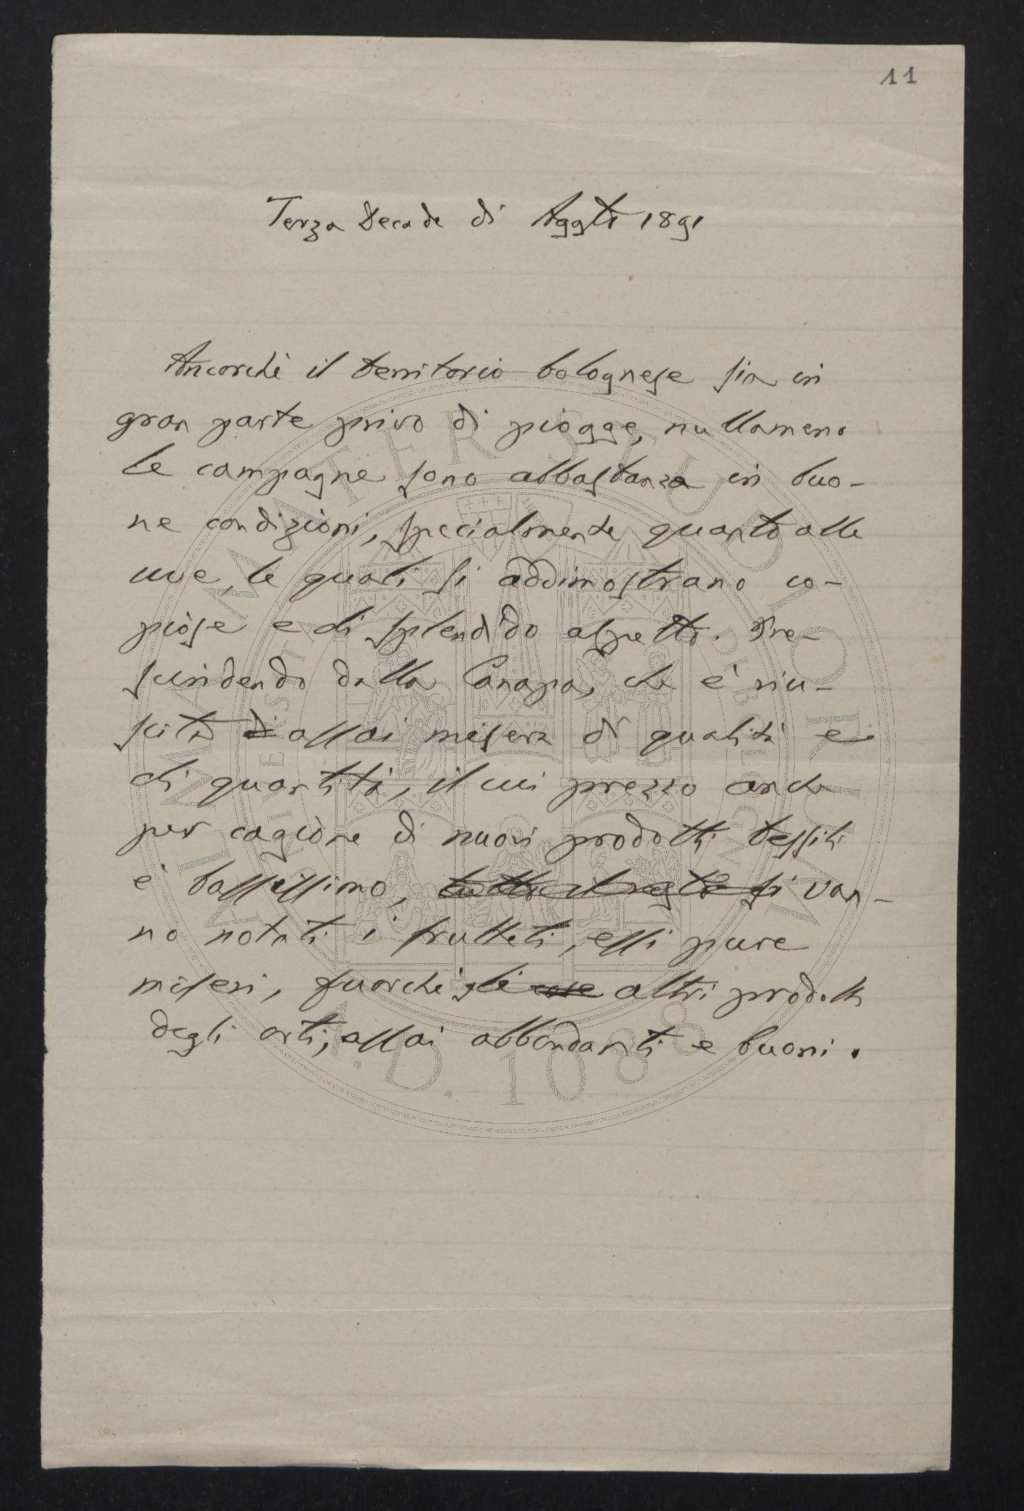 11
Terza Decade di Aggto 1891
Ancorchè il territorio bolognese sia in
gran parte privo di piogge, nullameno
le campagne sono abbastanza in buo-
ne condizioni, specialmente quanto alle
uve, le quali si addimostrano co-
piose e di splendido aspetto. Pre-
scindendo dalla Canapa, che è riu-
scita di assai misera di qualità e
di quantità, il cui prezzo anche
per cagione di nuovi prodotti tessili
è bassissimo, tutto il resto si van-
no notati i frutteti, essi pure
miseri, fuorchè gli altri prodotti
degli orti, assai abbondanti e buoni.
ALMA MATER STUDIORUM
A.D. 1088